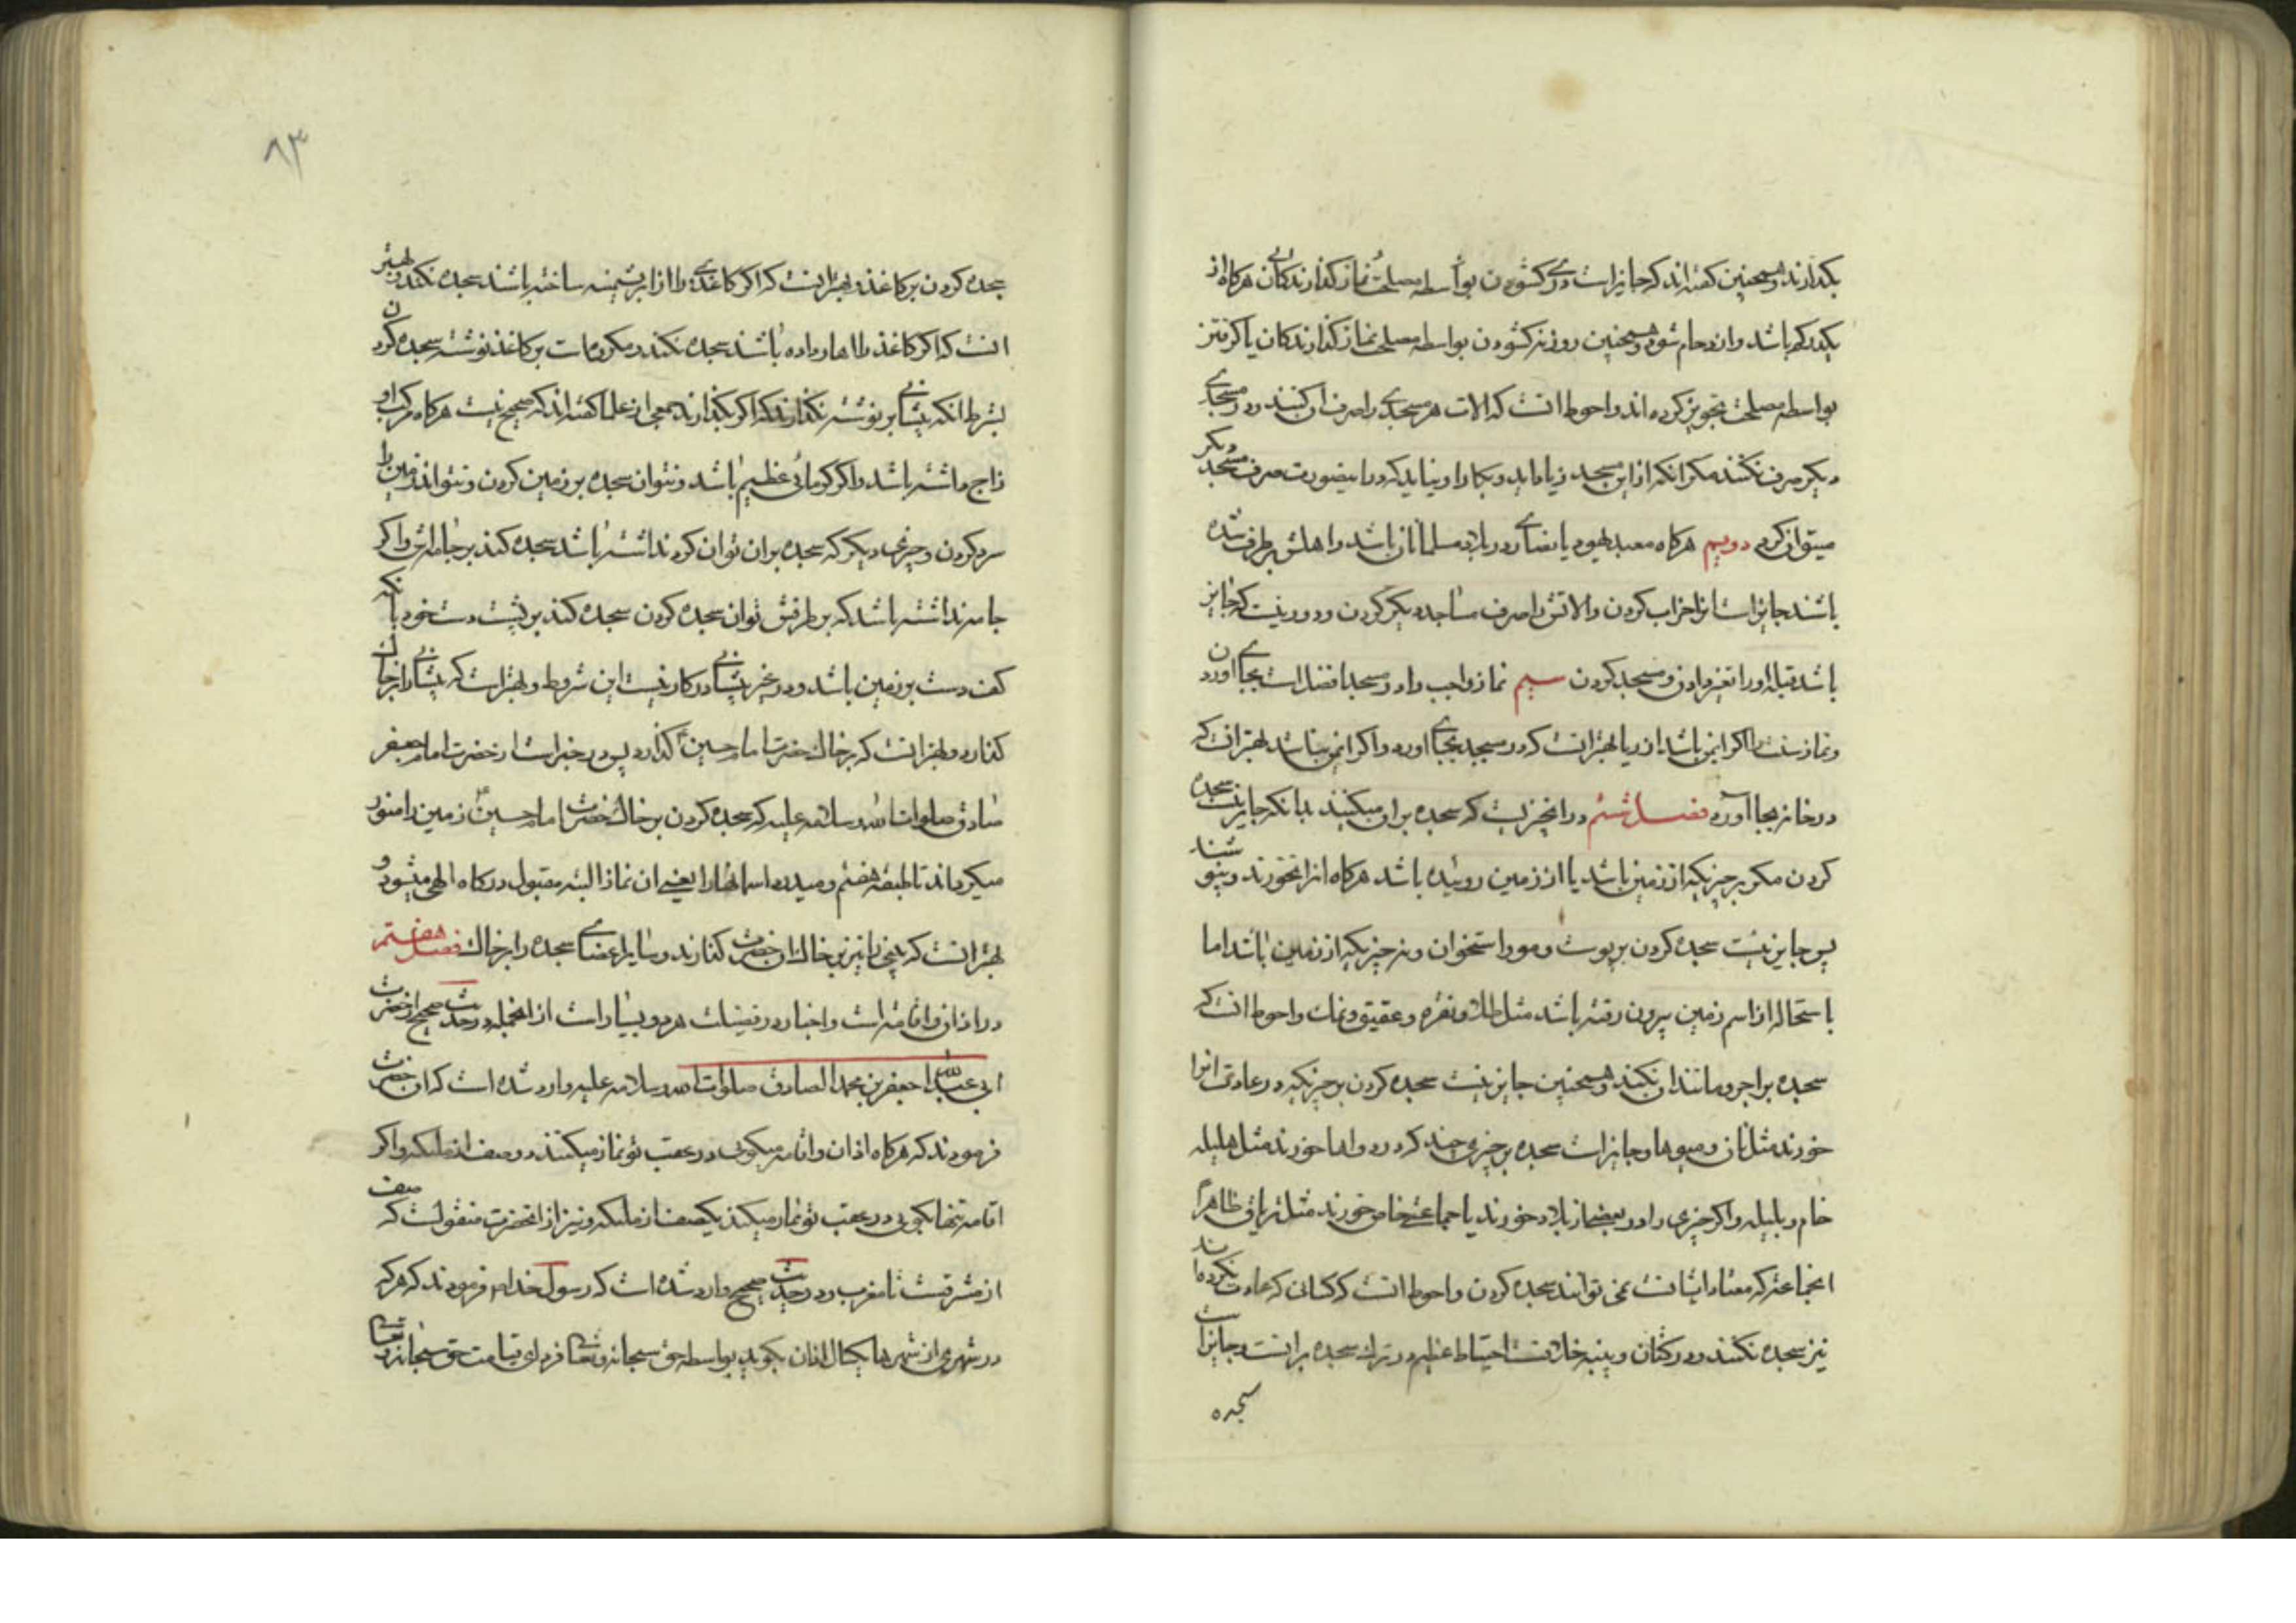 بکذارند و همچنین کفته‌اند که جایز است دری کشودن بواسطه مصلحت نماز کذارندکانی هرکاه از
یکدر کم باشد و ازدحام شود و همچنین روزنه کشودن بواسطه مصلحت نماز کذارندکان یا کرفتن
بواسطه مصلحت تجویز کرده‌اند و احوط انست که الات هر مسجدی را صرف ان کنند و در مسجدی
دیکر صرف نکنند مکر انکه از این مسجد زیاد اید و بکار او نیاید که در اینصورت صرف مسجد دیکر
میتوان کرد دویم هرکاه معبد یهود یا نصاری در بلاد مسلمانان باشد و اهلش برطرف شده
باشند جایز است انرا خراب کردن و الاتش را صرف مساجد دیکر کردن و دور نیست که جایز
باشد قبله او را تغیر دادن و مسجد کردن سیم نماز واجب را در مسجد افضل است بجای اوردن
و نماز سنت را اکر ایمن باشد از ریا بهتر انست که در مسجد بجای اورد و اکر ایمن نباشد بهتر انست که
در خانه بجا آورد فصل ششم در انچیزیست که سجده بر ان میکنند بدانکه جایز نیست سجده
کردن مکر بر چیزیکه از زمین باشد یا از زمین روئیده باشد هرکاه انرا نخورند و نپوشند
پس جایز نیست سجده کردن بر پوست و مو و استخوان و نه چیزیکه از زمین باشد اما
باستحاله از اسم زمین بیرون رفته باشد مثل طلا و نقره و عقیق و نمک و احوط انست که
سجده بر اجر و مانند ان نکنند و همچنین جایز نیست سجده کردن بر چیزیکه در عادت انرا
خورند مثل نان و میوها و جایز است سجده بر چیزی چند که در دواها خورند مثل هلیله
خام و بلیله و اکر چیزی را در بعضی از بلاد خورند یا جماعتی خاص خورند مثل تریاق ظاهرا
انجماعتی که معتاد ایشانست نمی توانند سجده کردن و احوط انست که کسانی که عادت نکرده‌اند
نیز سجده نکنند و در کتان و پنبه خلافست احتیاط عظیم در ترک سجده بر انست و جایز است
سجده
۸۳
سجده کردن بر کاغذ و بهتر انست که اکر کاغذی را از ابریشیمنه ساخته باشند سجده نکند و بهتر
انست که اکر کاغذ را اهار داده باشند سجده نکند و مکروه است بر کاغذ نوشته سجده کردن
بشرط انکه پیشانی بر نوشته نکذارند که اکر بکذارند جمعی از علما کفته‌اند که صحیح نیست هرکاه مرکب او
زاج داشته باشد و اکر کرمائی عظیم باشد و نتوان سجده بر زمین کردن و نتواند زمین را
سرد کردن و چیزی دیکر که سجده بر ان توان کرد نداشته باشد سجده کند بر جامه‌اش و اکر
جامه نداشته باشد که بر طرفش توان سجده کردن سجده کند بر پشت دست خود بانکه
کف دست بر زمین باشد و در غیر پیشانی در کار نیست این شروط و بهتر است که پیشانی را بر خاک
کذارد و بهتر انست که بر خاک حضرت امام حسین ع کذارد پس در خبر است از حضرت امام جعفر
صادق صلوات الله و سلامه علیه که سجده کردن بر خاک حضرت امام حسین ع زمین را منور
میکرداند تا طبقه هفتم و میدرد اسمانها را یعنی ان نماز البته مقبول درکاه الهی میشود و
بهتر انست که بینی را نیز بر خاک ان حضرت کذارند و سایر اعضای سجده را بر خاک فصل هفتم
در اذان و اقامه است و اخبار در فضیلت هر دو بسیار است از انجمله در حدیث صحیح از حضرت
ابی عبد الله جعفر بن محمد الصادق صلوات الله و سلامه علیه وارد شده است که ان حضرت
فرمودند که هرکاه اذان و اقامه میکوئی در عقب تو نماز میکنند دو صف از ملئکه و اکر
اقامه تنها بکوئی در عقب تو نماز میکند یکصف از ملئکه و نیز از انحضرت منقولست که صف
از مشرقست تا مغرب و در حدیث صحیح وارد شده است که رسول خدا ص فرمودند که هر که
در شهری از شهرها یکسال اذان بکوید بواسطه حق سبحانه و تعالی فردای قیامت حق سبحانه و تعالی